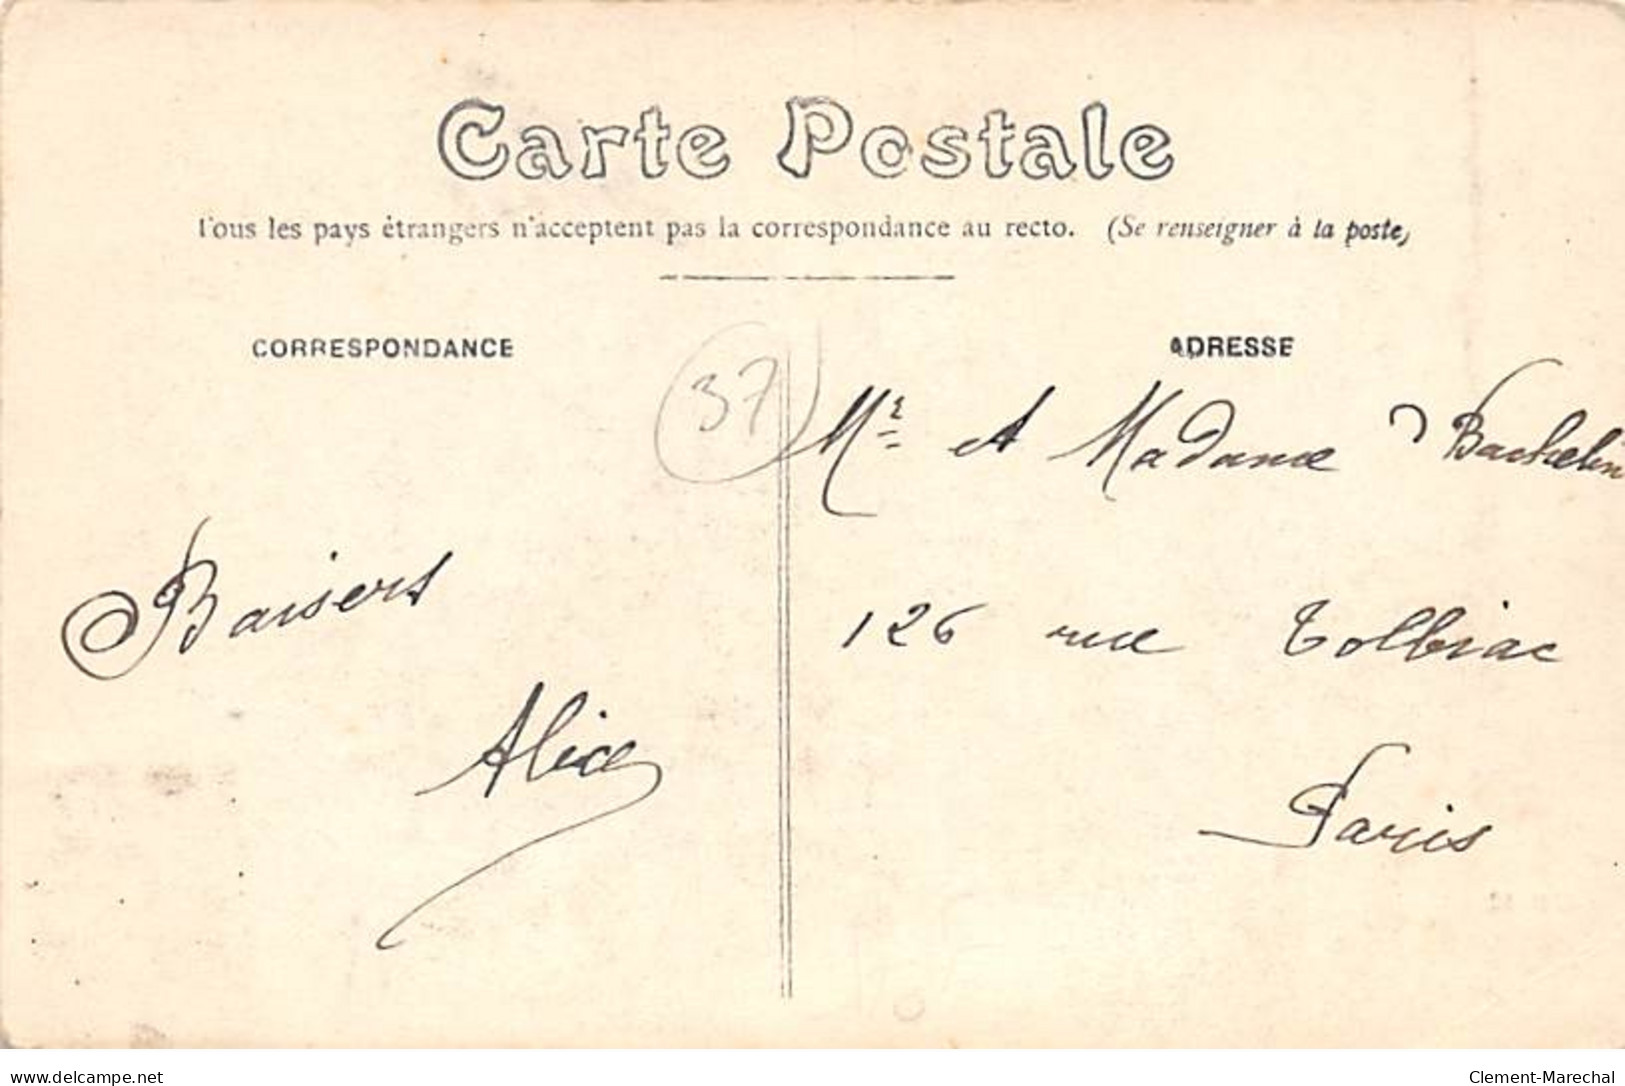 Carte Postale
Tous les pays étrangers n'acceptent pas la correspondance au recto. (Se renseigner à la poste)
CORRESPONDANCE
ADRESSE
37
Mr et Madame Bachelin
126 rue Tolbiac
Paris
Baisers
Alice
delcampe.net
Clement-Marechal